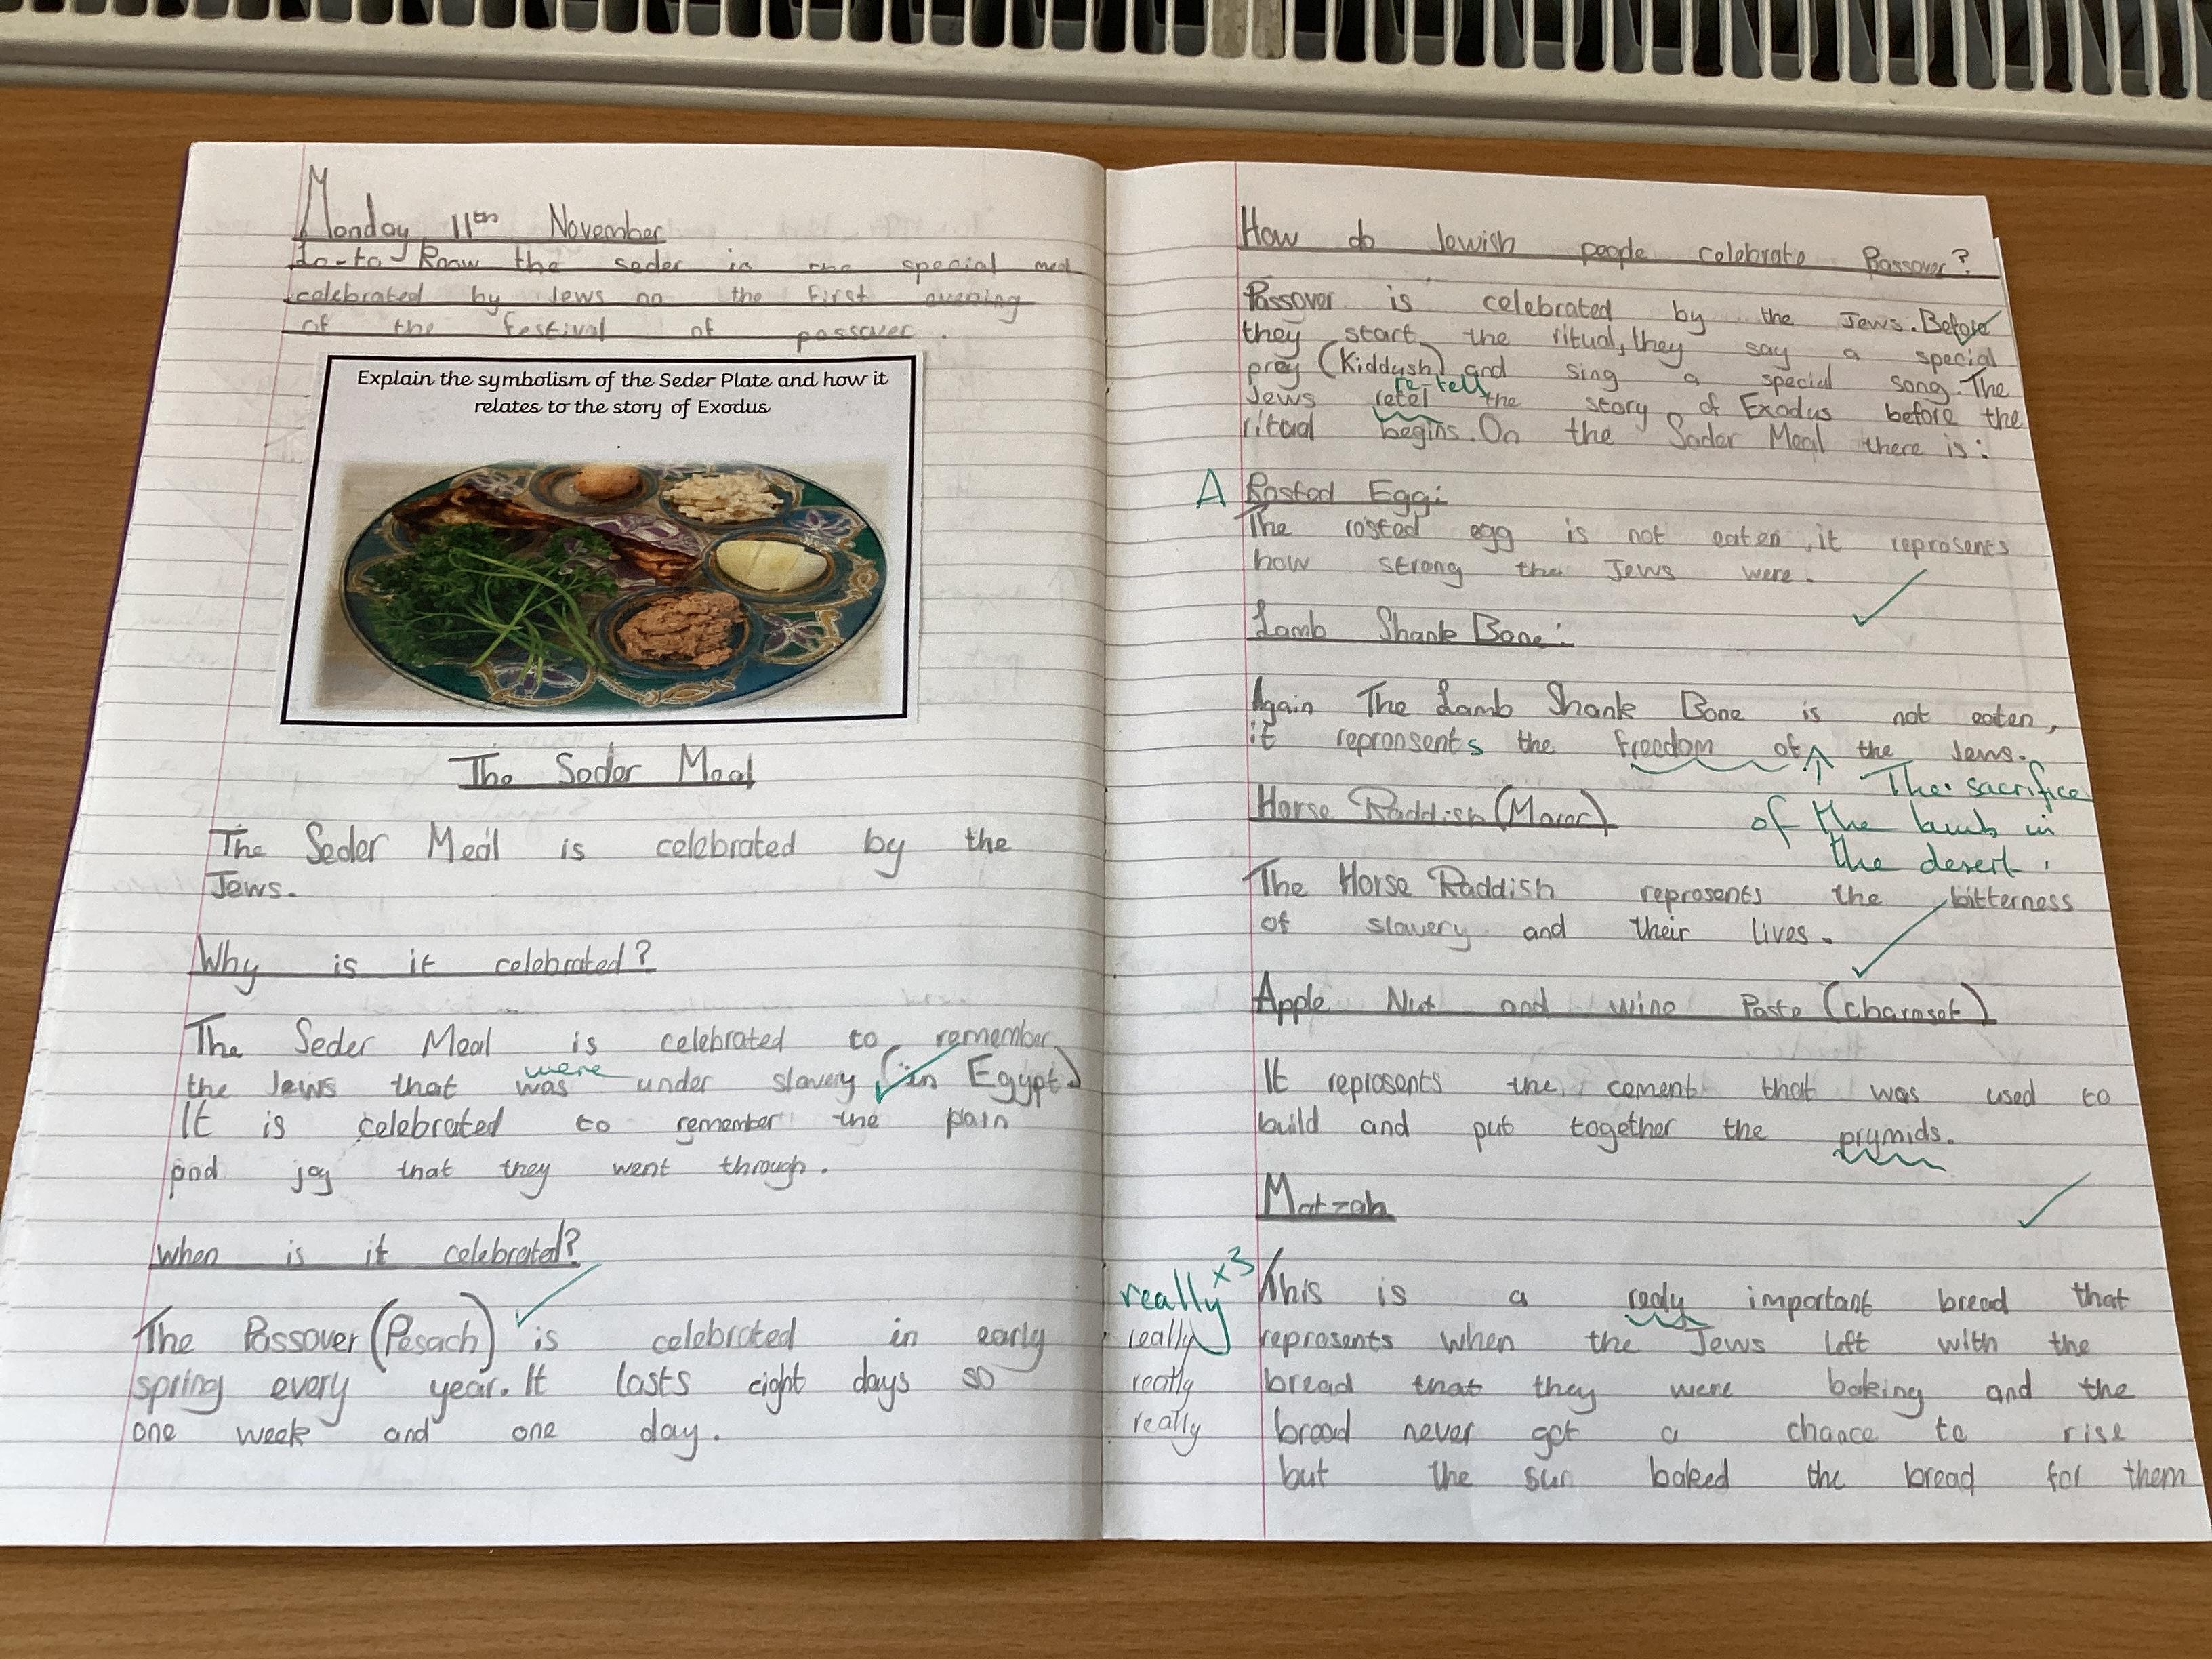 Monday 11th November
Lo-to know the seder is the special meal
celebrated by Jews on the first evening
of the festival of passover.
Explain the symbolism of the Seder Plate and how it
relates to the story of Exodus
The Seder Meal
The Seder Meal is celebrated by the
Jews.
Why is it celebrated?
The Seder Meal is celebrated to remember
were
the Jews that was under slavery (in Egypt)
It is celebrated to remember the pain
and joy that they went through.
when is it celebrated?
The Passover (Pesach) is celebrated in early
spring every year. It lasts eight days so
one week and one day.
How do Jewish people celebrate Passover?
Passover is celebrated by the Jews. Before
they start the ritual, they say a special
prey (Kiddush) and sing a special song. The
re-tell
Jews retel the story of Exodus before the
ritual begins. On the Sader Meal there is:
A Rosted Egg:
The rosted egg is not eaten, it represents
how strong the Jews were.
Lamb Shank Bone:
Again The Lamb Shank Bone is not eaten,
it repronsents the freedom of the Jews.
The sacrifice
of the lamb in
the desert.
Horse Raddish (Maror)
The Horse Raddish represents the bitterness
of slavery and their lives.
Apple Nut and wine Paste (charoset)
It represents the cement that was used to
build and put together the prymids.
Matzah
really x3
really
really
really
This is a realy important bread that
represents when the Jews left with the
bread that they were baking and the
bread never got a chance to rise
but the sun baked the bread for them